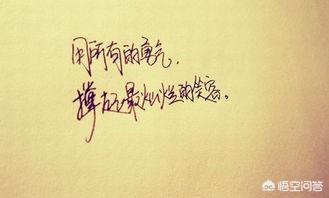 用所有的勇气,
撑起最灿烂的笑容。
悟空问答